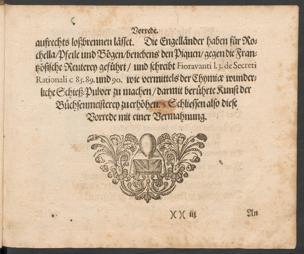 Vorrede.
auffrechts loßbrennen lässet. Die Engelländer haben für Ro-
chella/Pfeile und Bögen/benebens den Piquen/gegen die Fran-
tzösische Reuterey geführt/ und schreibt Fioravanti l.3. de Secreti
Rationali c 85.89. und 90. wie vermittels der Chymice wunder-
liche Schieß-Pulver zu machen/ darmit berührte Kunst der
Büchsenmeisterey zu erhöhen. Schliessen also diese
Vorrede mit einer Vermahnung.
XX iij
An